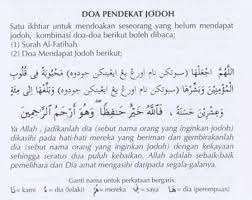 DOA PENDEKAT JODOH
Satu ikhtiar untuk mendoakan seseorang yang belum mendapat
jodoh, kombinasi doa-doa berikut boleh dibaca;
(1) Surah Al-Fatihah
(2) Doa Mendapat Jodoh berikut;
اَللَّهُمَّ اجْعَلْهَا (سبوتكن نام اورڠ يڠ ايڠينكن جودوه) مَحْبُوبَةً فِي قُلُوبِ
وَعِشْرِينَ حَسَنَةً ، فَاللهُ خَيْرٌ حَفِيظًا وَهُوَ أَرْحَمُ الرَّاحِمِينَ
Ya Allah, jadikanlah dia (sebut nama orang yang inginkan jodoh)
dikasihi pada hati-hati mereka yang beriman dan gembirakanlah
dia (sebut nama orang yang inginkan jodoh) dengan kekayaan
sehingga seratus dua puluh kebaikan. Allah adalah sebaik-baik
pemelihara dan Dia amat mengasihi daripada segala-galanya.
Ganti nama untuk perkataan bergaris.
نا = kami ه = dia (lelaki) ي = saya ها = dia (perempuan)